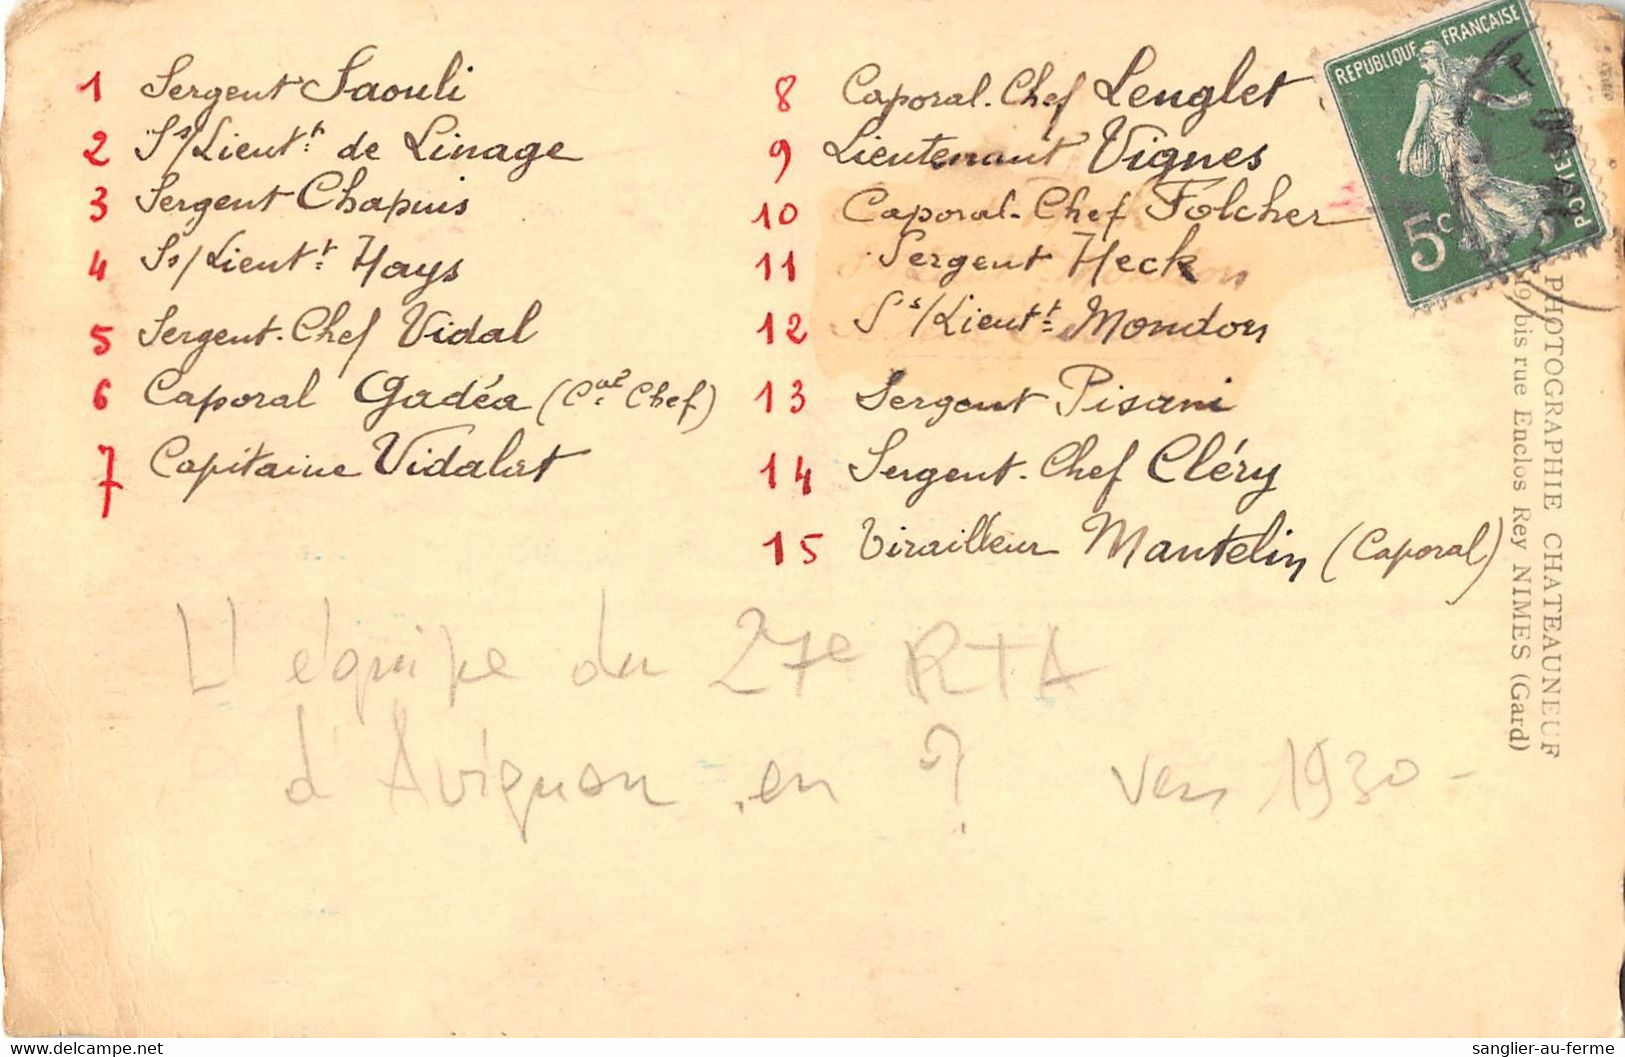 1 Sergent Saouli
2 Ss/Lieutt de Linage
3 Sergent Chapuis
4 Ss/Lieutt Hays
5 Sergent-Chef Vidal
6 Caporal Gadéa (Cal Chef)
7 Capitaine Vidalat
8 Caporal-Chef Lenglet
9 Lieutenant Vignes
10 Caporal-Chef Folcher
11 Sergent Heck
12 Ss/Lieutt Mondon
13 Sergent Pisani
14 Sergent-Chef Cléry
15 Tirailleur Mantelin (Caporal)
L'équipe du 27e RTA
d'Avignon en ? vers 1930-
REPUBLIQUE FRANÇAISE
5c
POSTES
PHOTOGRAPHIE CHATEAUNEUF
19 bis rue Enclos Rey NIMES (Gard)
sanglier-au-ferme